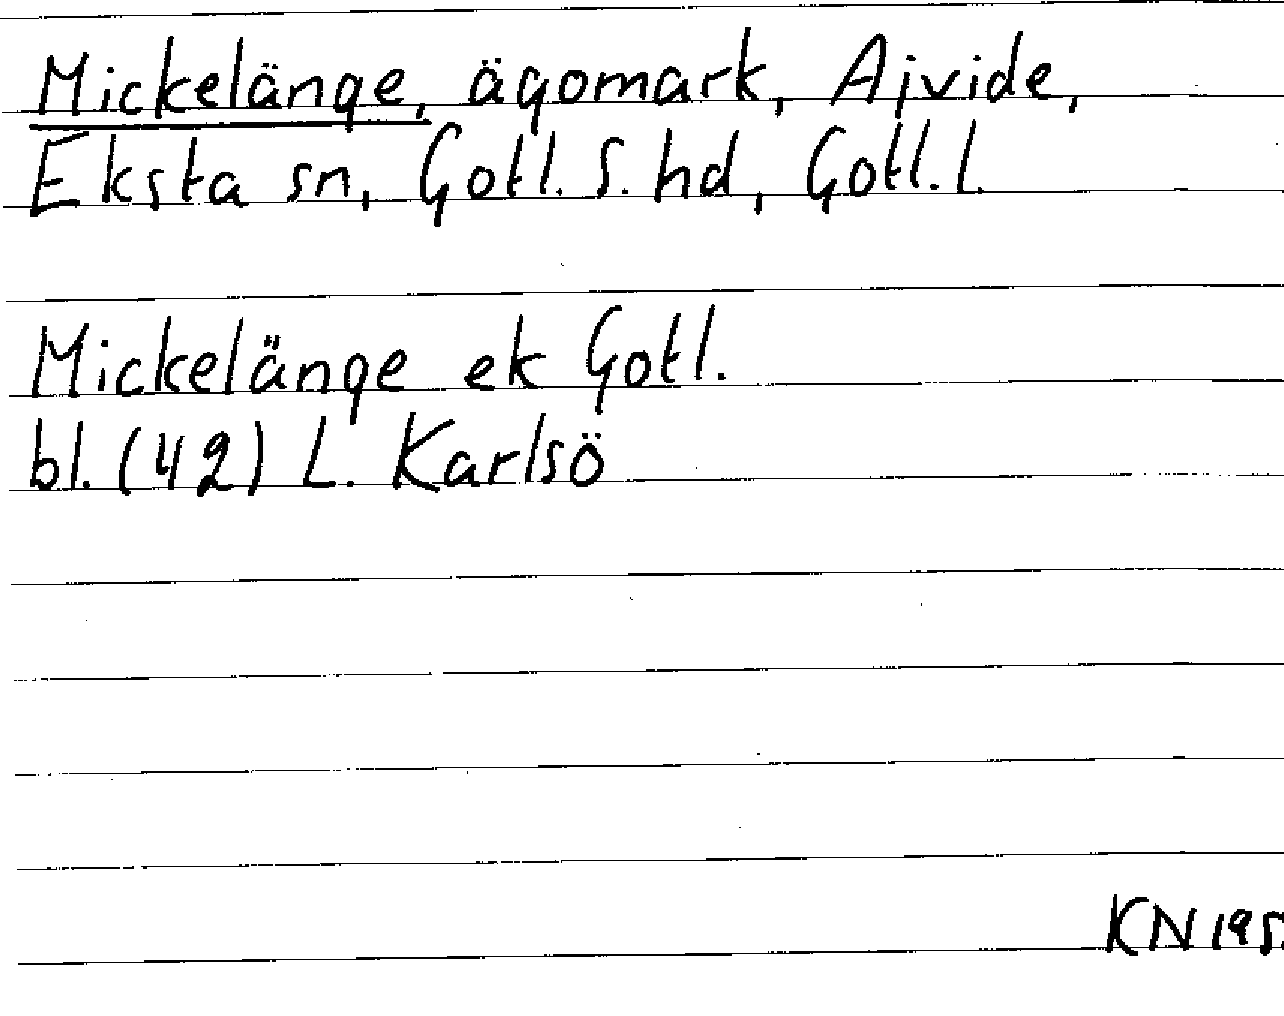 Mickelänge, ägomark, Ajvide,
Eksta sn, Gotl. S. hd, Gotl. l.
Mickelänge ek Gotl.
bl. (42) L. Karlsö
KN 195